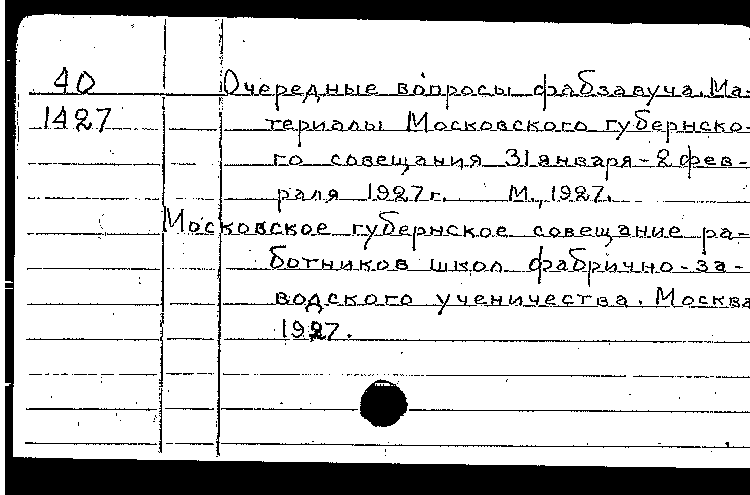 40 Очередные вопросы фабзавуча. Ма-
1427 териалы Московского губернско-
го совещания 31 января - 2 фев-
раля 1927 г. М., 1927.
Московское губернское совещание ра-
ботников школ фабрично-за-
водского ученичества. Москва
1927.